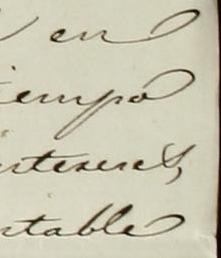 en
iempo
ntereses,
ntable